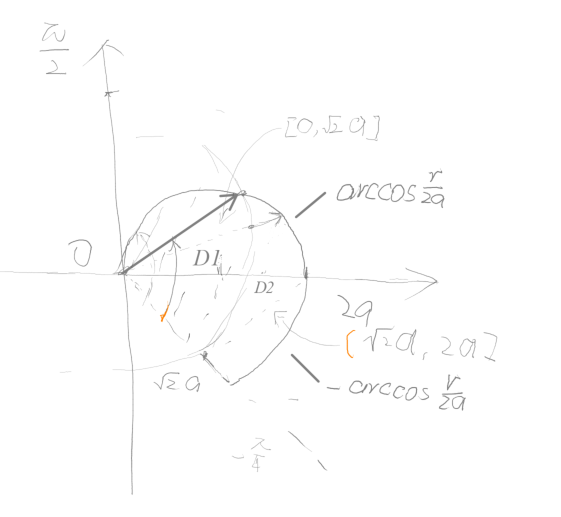 π/2
[0, √2 a]
arccos r/2a
0
D1
D2
2a
[√2 a, 2a]
√2 a
- arccos r/2a
- π/4